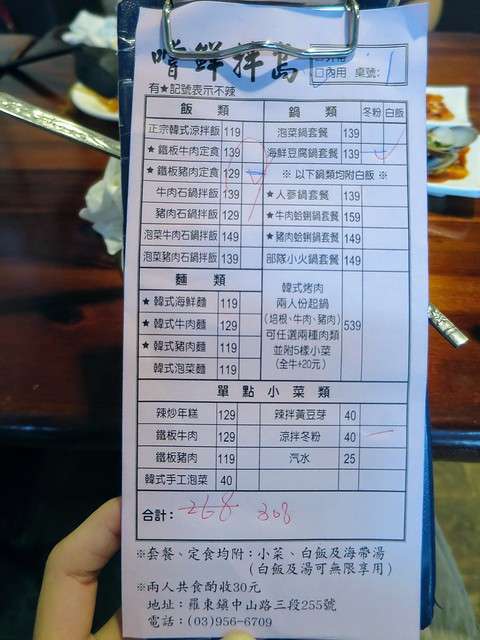 嚐鮮拌島
□外帶
□內用 桌號: 1
有★記號表示不辣
飯 類
正宗韓式涼拌飯 119
★ 鐵板牛肉定食 139
★ 鐵板豬肉定食 129
牛肉石鍋拌飯 139
豬肉石鍋拌飯 129
泡菜牛肉石鍋拌飯 149
泡菜豬肉石鍋拌飯 139
麵 類
★ 韓式海鮮麵 119
★ 韓式牛肉麵 129
★ 韓式豬肉麵 119
韓式泡菜麵 119
鍋 類 冬粉 白飯
泡菜鍋套餐 139
海鮮豆腐鍋套餐 139
※ 以下鍋類均附白飯 ※
★人蔘鍋套餐 139
★牛肉蛤蜊鍋套餐 159
★豬肉蛤蜊鍋套餐 149
部隊小火鍋套餐 149
韓式烤肉
兩人份起鍋
(培根、牛肉、豬肉) 539
可任選兩種肉類
並附5樣小菜
(全牛+20元)
單 點 小 菜 類
辣炒年糕 129 辣拌黃豆芽 40
鐵板牛肉 129 涼拌冬粉 40
鐵板豬肉 119 汽水 25
韓式手工泡菜 40
合計: 268 308
※套餐、定食均附:小菜、白飯及海帶湯
(白飯及湯可無限享用)
※兩人共食酌收30元
地址:羅東鎮中山路三段255號
電話:(03)956-6709